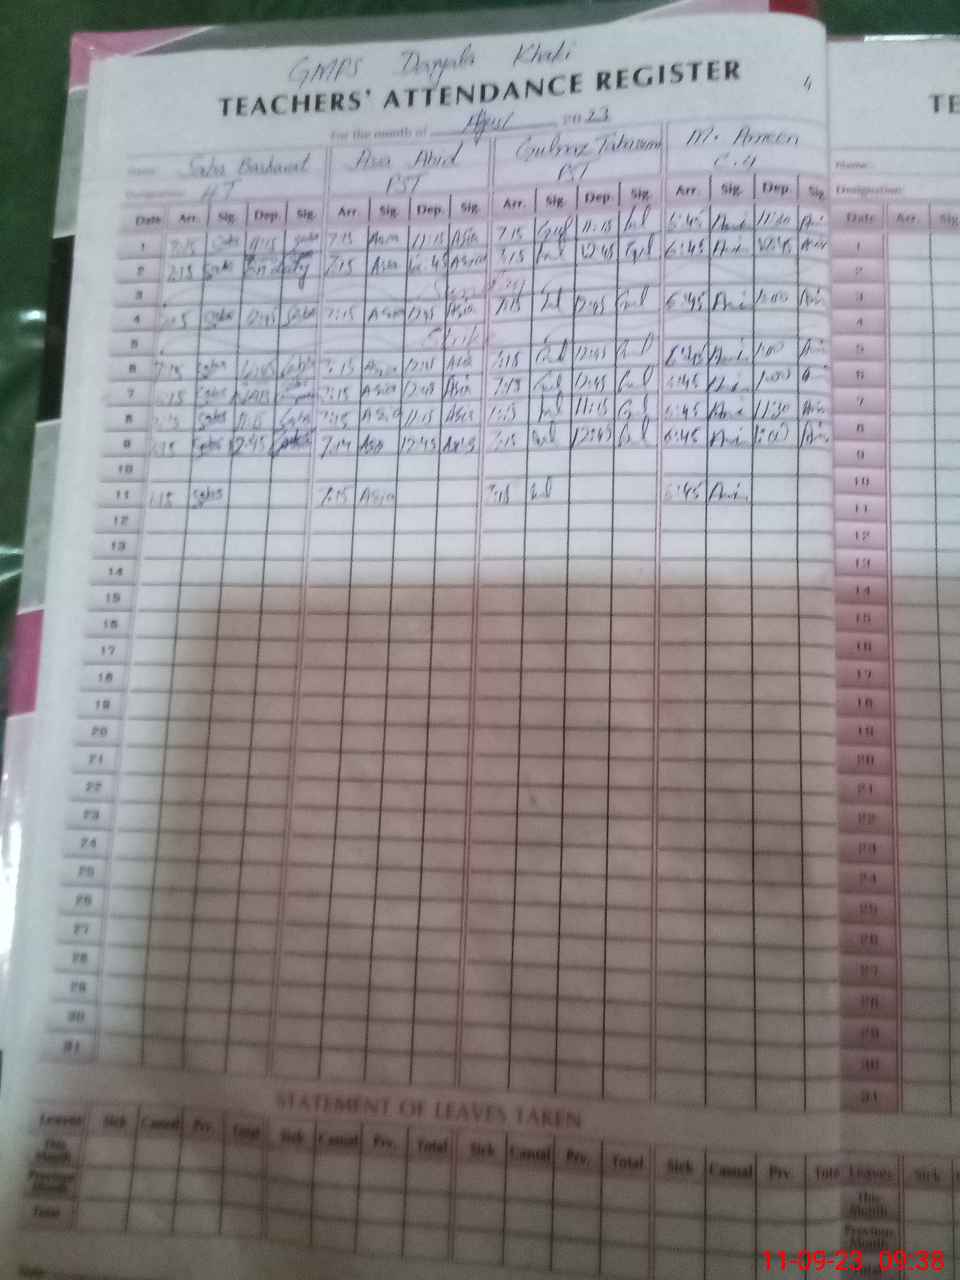 GMPS Danyala Khaki
TEACHERS' ATTENDANCE REGISTER
For the month of 2023
Name: Saba Basharat Asia Abid Gulnaz Tabassum M. Ameen
Designation: PST PST C-4
Date Arr. Sig. Dep. Sig. Arr. Sig. Dep. Sig. Arr. Sig. Dep. Sig. Arr. Sig. Dep. Sig.
1 7:15 Saba 11:15 Saba 7:15 Asia 11:15 Asia 7:15 Gul 11:15 Gul 6:45 Ami 11:30 Ami
2 7:15 Saba On duty 7:15 Asia 12:45 Asia 7:15 Gul 12:45 Gul 6:45 Ami 12:45 Ami
3 Sunday
4 7:15 Saba 12:45 Saba 7:15 Asia 12:45 Asia 7:15 Gul 12:45 Gul 6:45 Ami 1:00 Ami
5 Strike
6 7:15 Saba 12:45 Saba 7:15 Asia 12:45 Asia 7:15 Gul 12:45 Gul 6:45 Ami 1:00 Ami
7 7:15 Saba 7:15 Asia 12:45 Asia 7:15 Gul 12:45 Gul 6:45 Ami 1:00
8 7:15 Saba 11:15 Saba 7:15 Asia 11:15 Asia 7:15 Gul 11:15 Gul 6:45 Ami 11:30 Ami
9 7:15 Saba 12:45 Saba 7:14 Asia 12:45 Asia 7:15 Gul 12:45 Gul 6:45 Ami 1:00 Ami
10
11 7:15 Saba 7:15 Asia 7:15 Gul 6:45 Ami
12
13
14
15
16
17
18
19
20
21
22
23
24
25
26
27
28
29
30
31
STATEMENT OF LEAVES TAKEN
Leaves Sick Casual Prv. Total Sick Casual Prv. Total Sick Casual Prv. Total Sick Casual Prv.
This Month
Previous Month
Total
TE
Name:
Designation:
Date Arr. Sig.
1
2
3
4
5
6
7
8
9
10
11
12
13
14
15
16
17
18
19
20
21
22
23
24
25
26
27
28
29
30
31
Leaves Sick
This Month
Previous Month
11-09-23 09:38